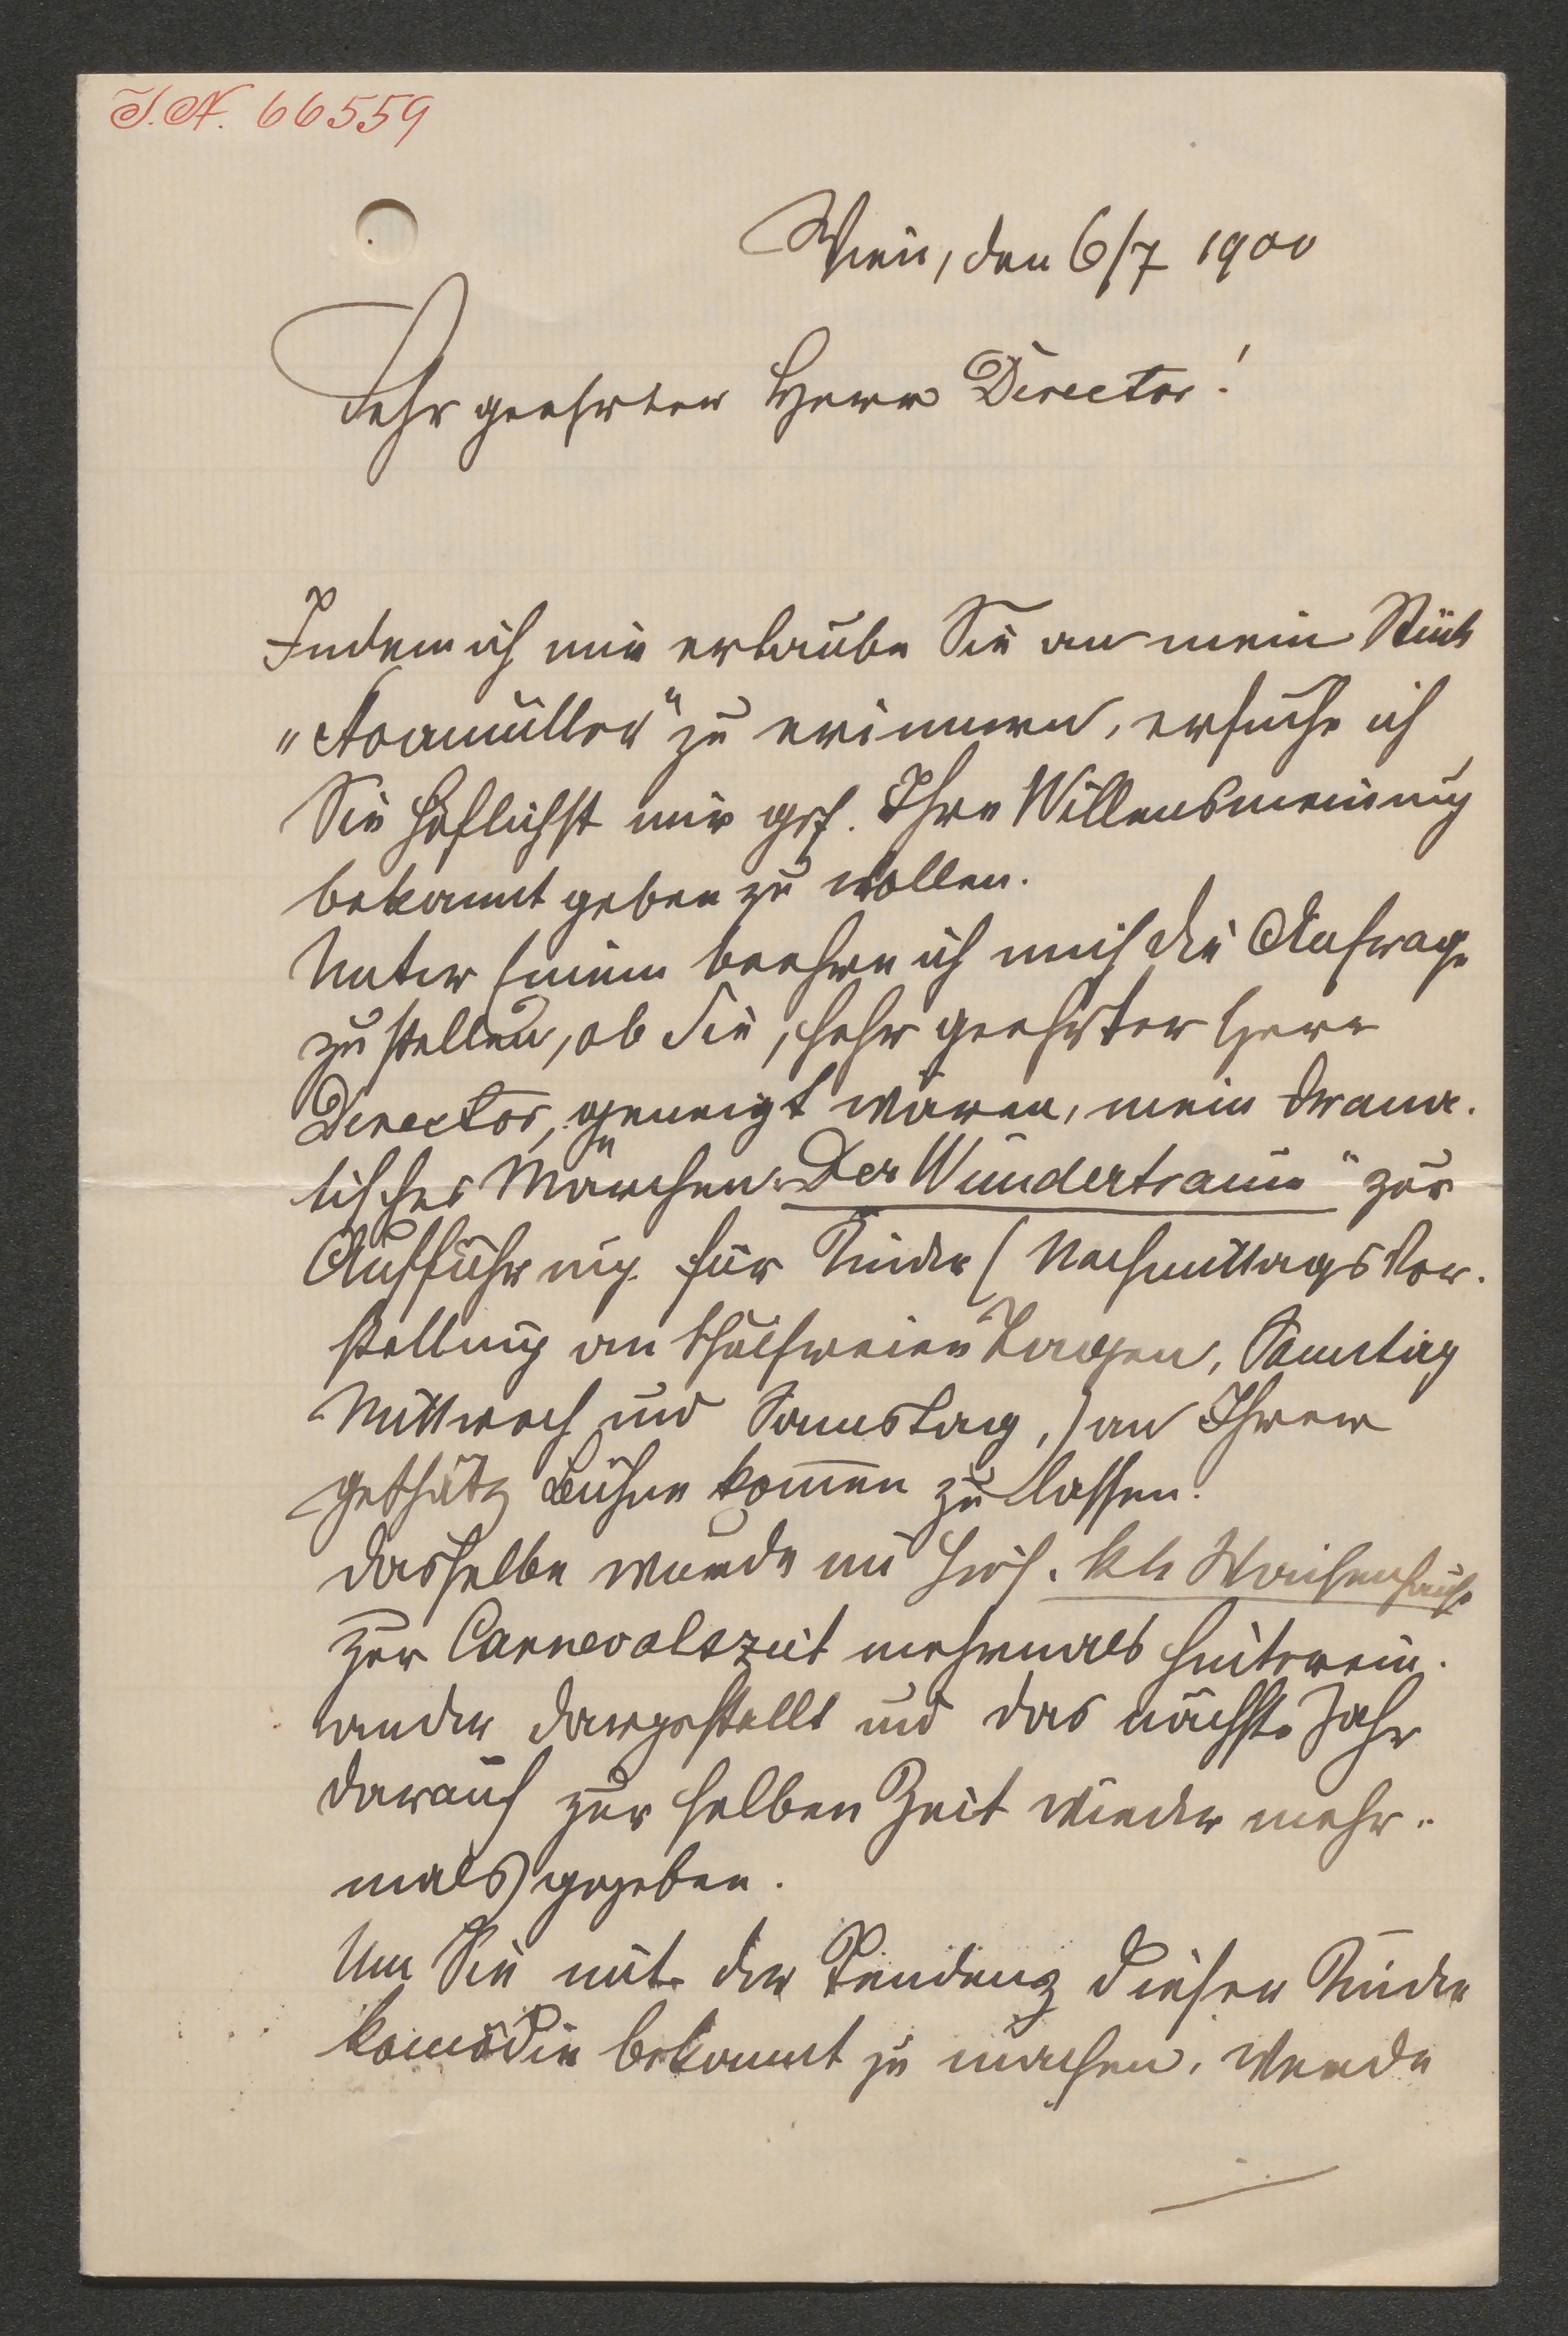 I.N. 66559
Wien, den 6/7 1900
Sehr geehrter Herr Director!
Indem ich mir erlaube Sie an mein Stück
zu erinnern, ersuche ich
Sie höflichst mir gef. Ihre Willensmeinung
bekannt geben zu wollen.
Unter einem beehre ich mich die Anfrage
zu stellen, ob Sie, sehr geehrter Herr
Director, geneigt wären, mein drama-
tisches Märchen "Der Wundertraum" zur
Aufführung für Kinder (Nachmittagsvor-
stellung an schulfreien Tagen, Sonntag
Mittwoch und Samstag,) an Ihrer
geschätz Bühne kom̄en zu lassen.
Dasselbe wurde im hies. kk Waisenhause
zur Carnevalszeit mehrmals hinterein-
ander dargestellt und das nächste Jahr
darauf zur selben Zeit wieder mehr-
mals gegeben.
Um Sie mit der Tendenz dieser Kinder
komödie bekannt zu machen, werde